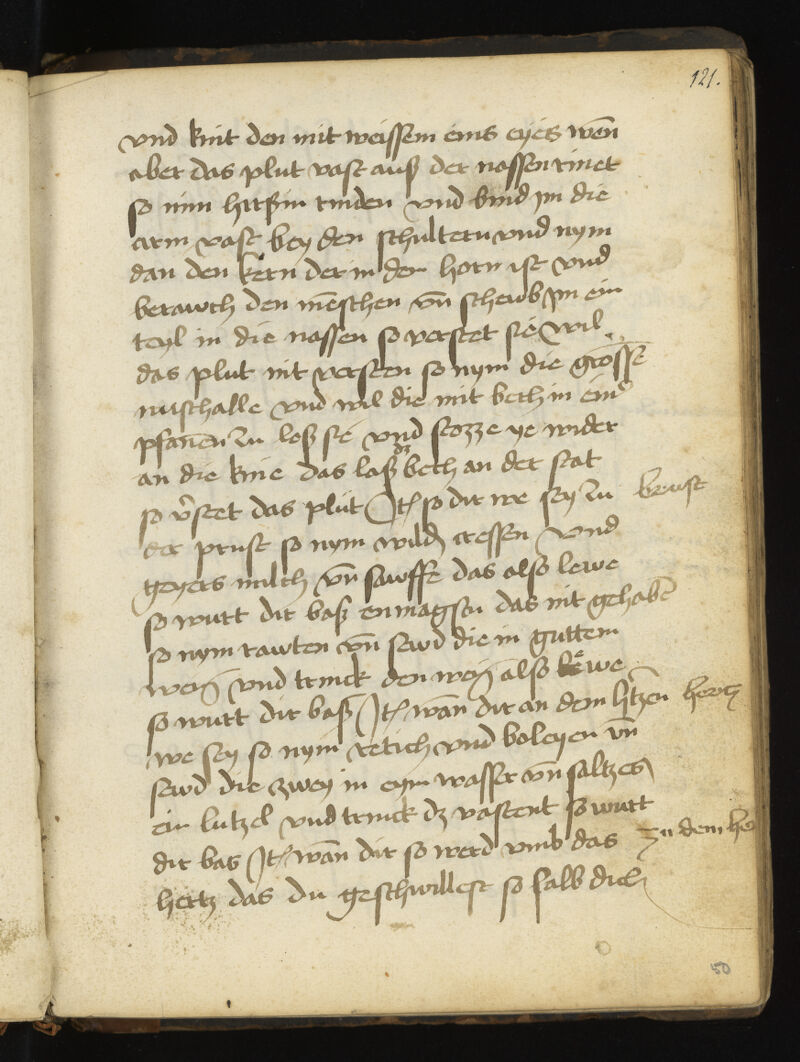 121.
vnd knit den mit weissem eins eyes wen̄
aber das plut vast auß der nassen rinet
so nim hirßin rinden vnd bind im die
arm vast bey den schultern vnd nym
dan den kern der in dem horn ist vnd
berawch den menschen vn̄ schewb im ein
teyl in die nassen so verstet sie wil
das plut nit versten so nym die grossē
nuschalle vnd wil die mit bech in einer
pfannen zu loß sie vnd stozze ye wider
an die knie das laß bech an der stat
so v̄stet das plut Jt̄ so dir we sey zu brust
der prust so nym wild cressen vnd
geyers milch vn̄ sawffe das also lewe
so wurt dir baß en magstu das nit gehabē
so nym rawten vn̄ sewd die in guttem
wein vnd trinck den wein also lewe
so wurt dir baß Jt̄ wan̄ dir an dem hertzen hertz
we sey so nym retich vnd boleyen vn̄
sewd die zwey in eym wasser vn̄ saltzes
ein lutzel vnd trinck dz vastent so wurt
dir bas Jt̄ wan̄ dir so werd vmb das zu dem he
hertz das du geschwillest so salb dich
50